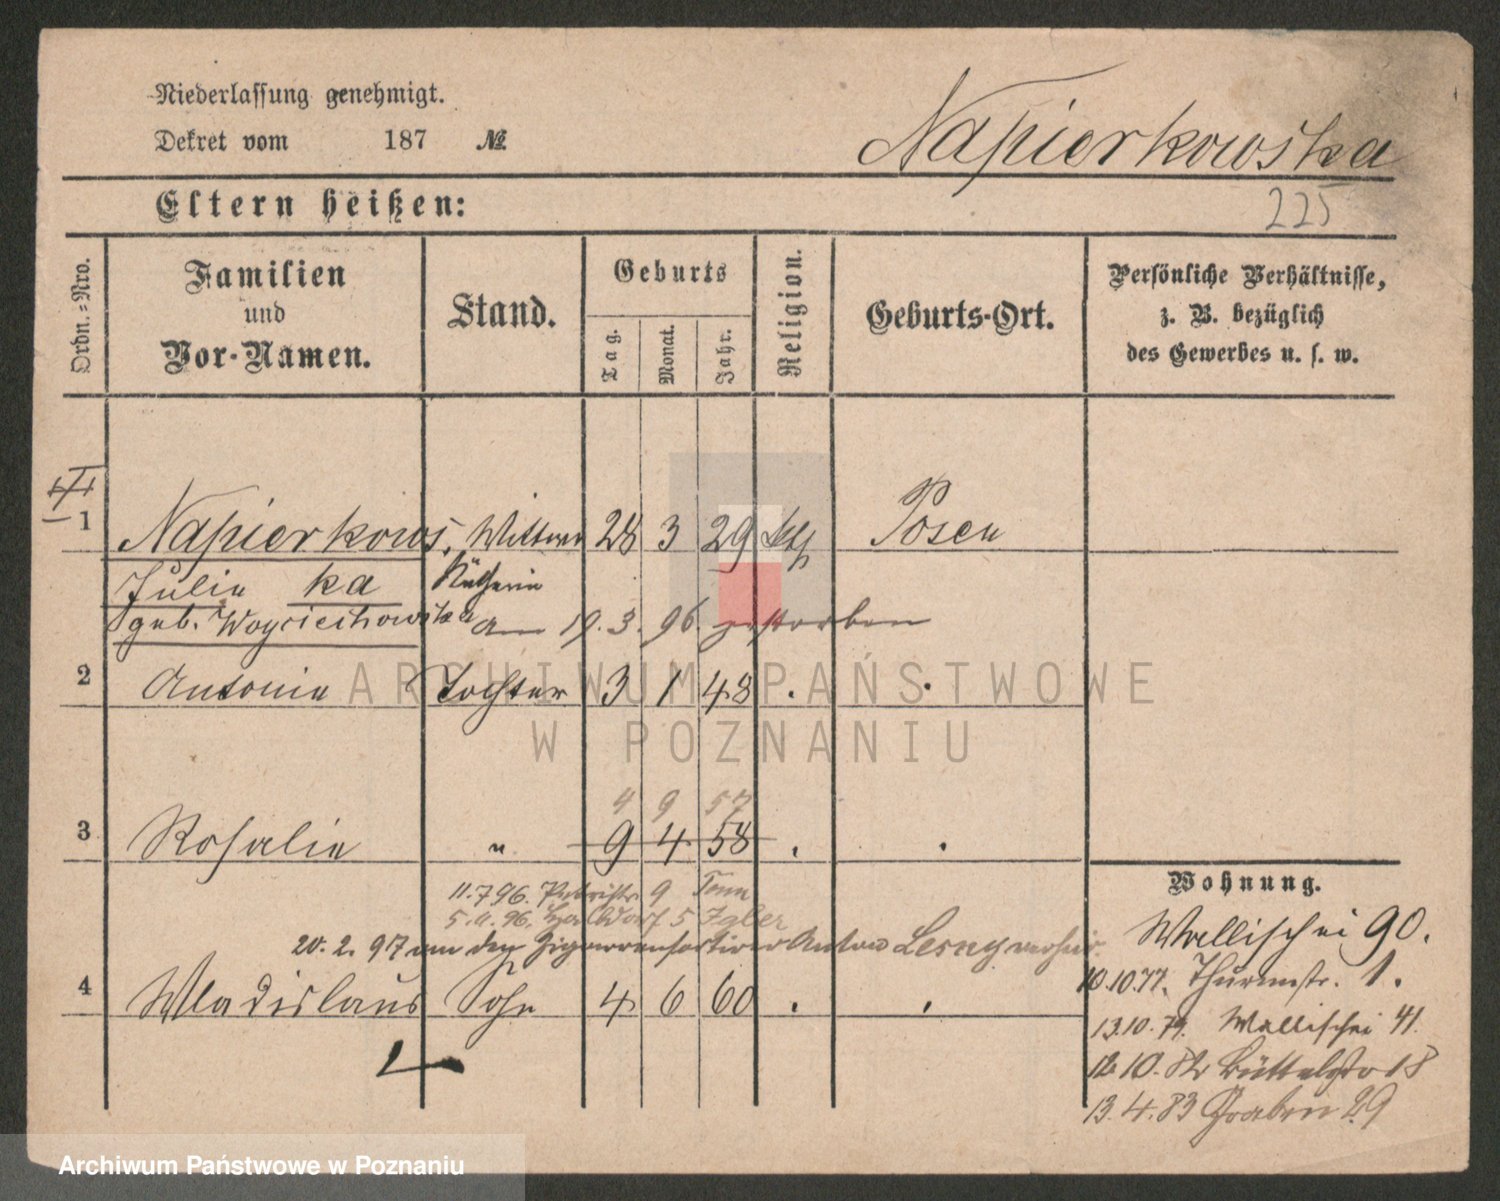 Niederlassung genehmigt.
Dekret vom 187 №
Napierkowska
225
Eltern heißen:
Ordn.-Nro.
Familien
und
Vor-Namen.
Stand.
Geburts
Tag.
Monat.
Jahr.
Religion.
Geburts-Ort.
Persönliche Verhältnisse,
z. B. bezüglich
des Gewerbes u. s. w.
1 Napierkows. Wittwe 28 3 29 kth Posen
Julie ka
geb. Woyciechowska am 19. 3. 96. gestorben
2 Antonie Tochter 3 1 48 . .
4 9 57
3 Rosalie " 9 4 58 . .
11.7.96. 9
5.
20. 2. 97 an den Zigarrensortirer Anton Lesny verheir.
4 Wladislaus Sohn 4 6 60 . .
Wohnung.
Wallischei 90.
10.10.77. Thurmstr. 1.
13.10.79. Wallischei 41.
12.10.82 Büttelstr 18
13.4.83 Graben 29
ARCHIWUM PAŃSTWOWE
W POZNANIU
Archiwum Państwowe w Poznaniu